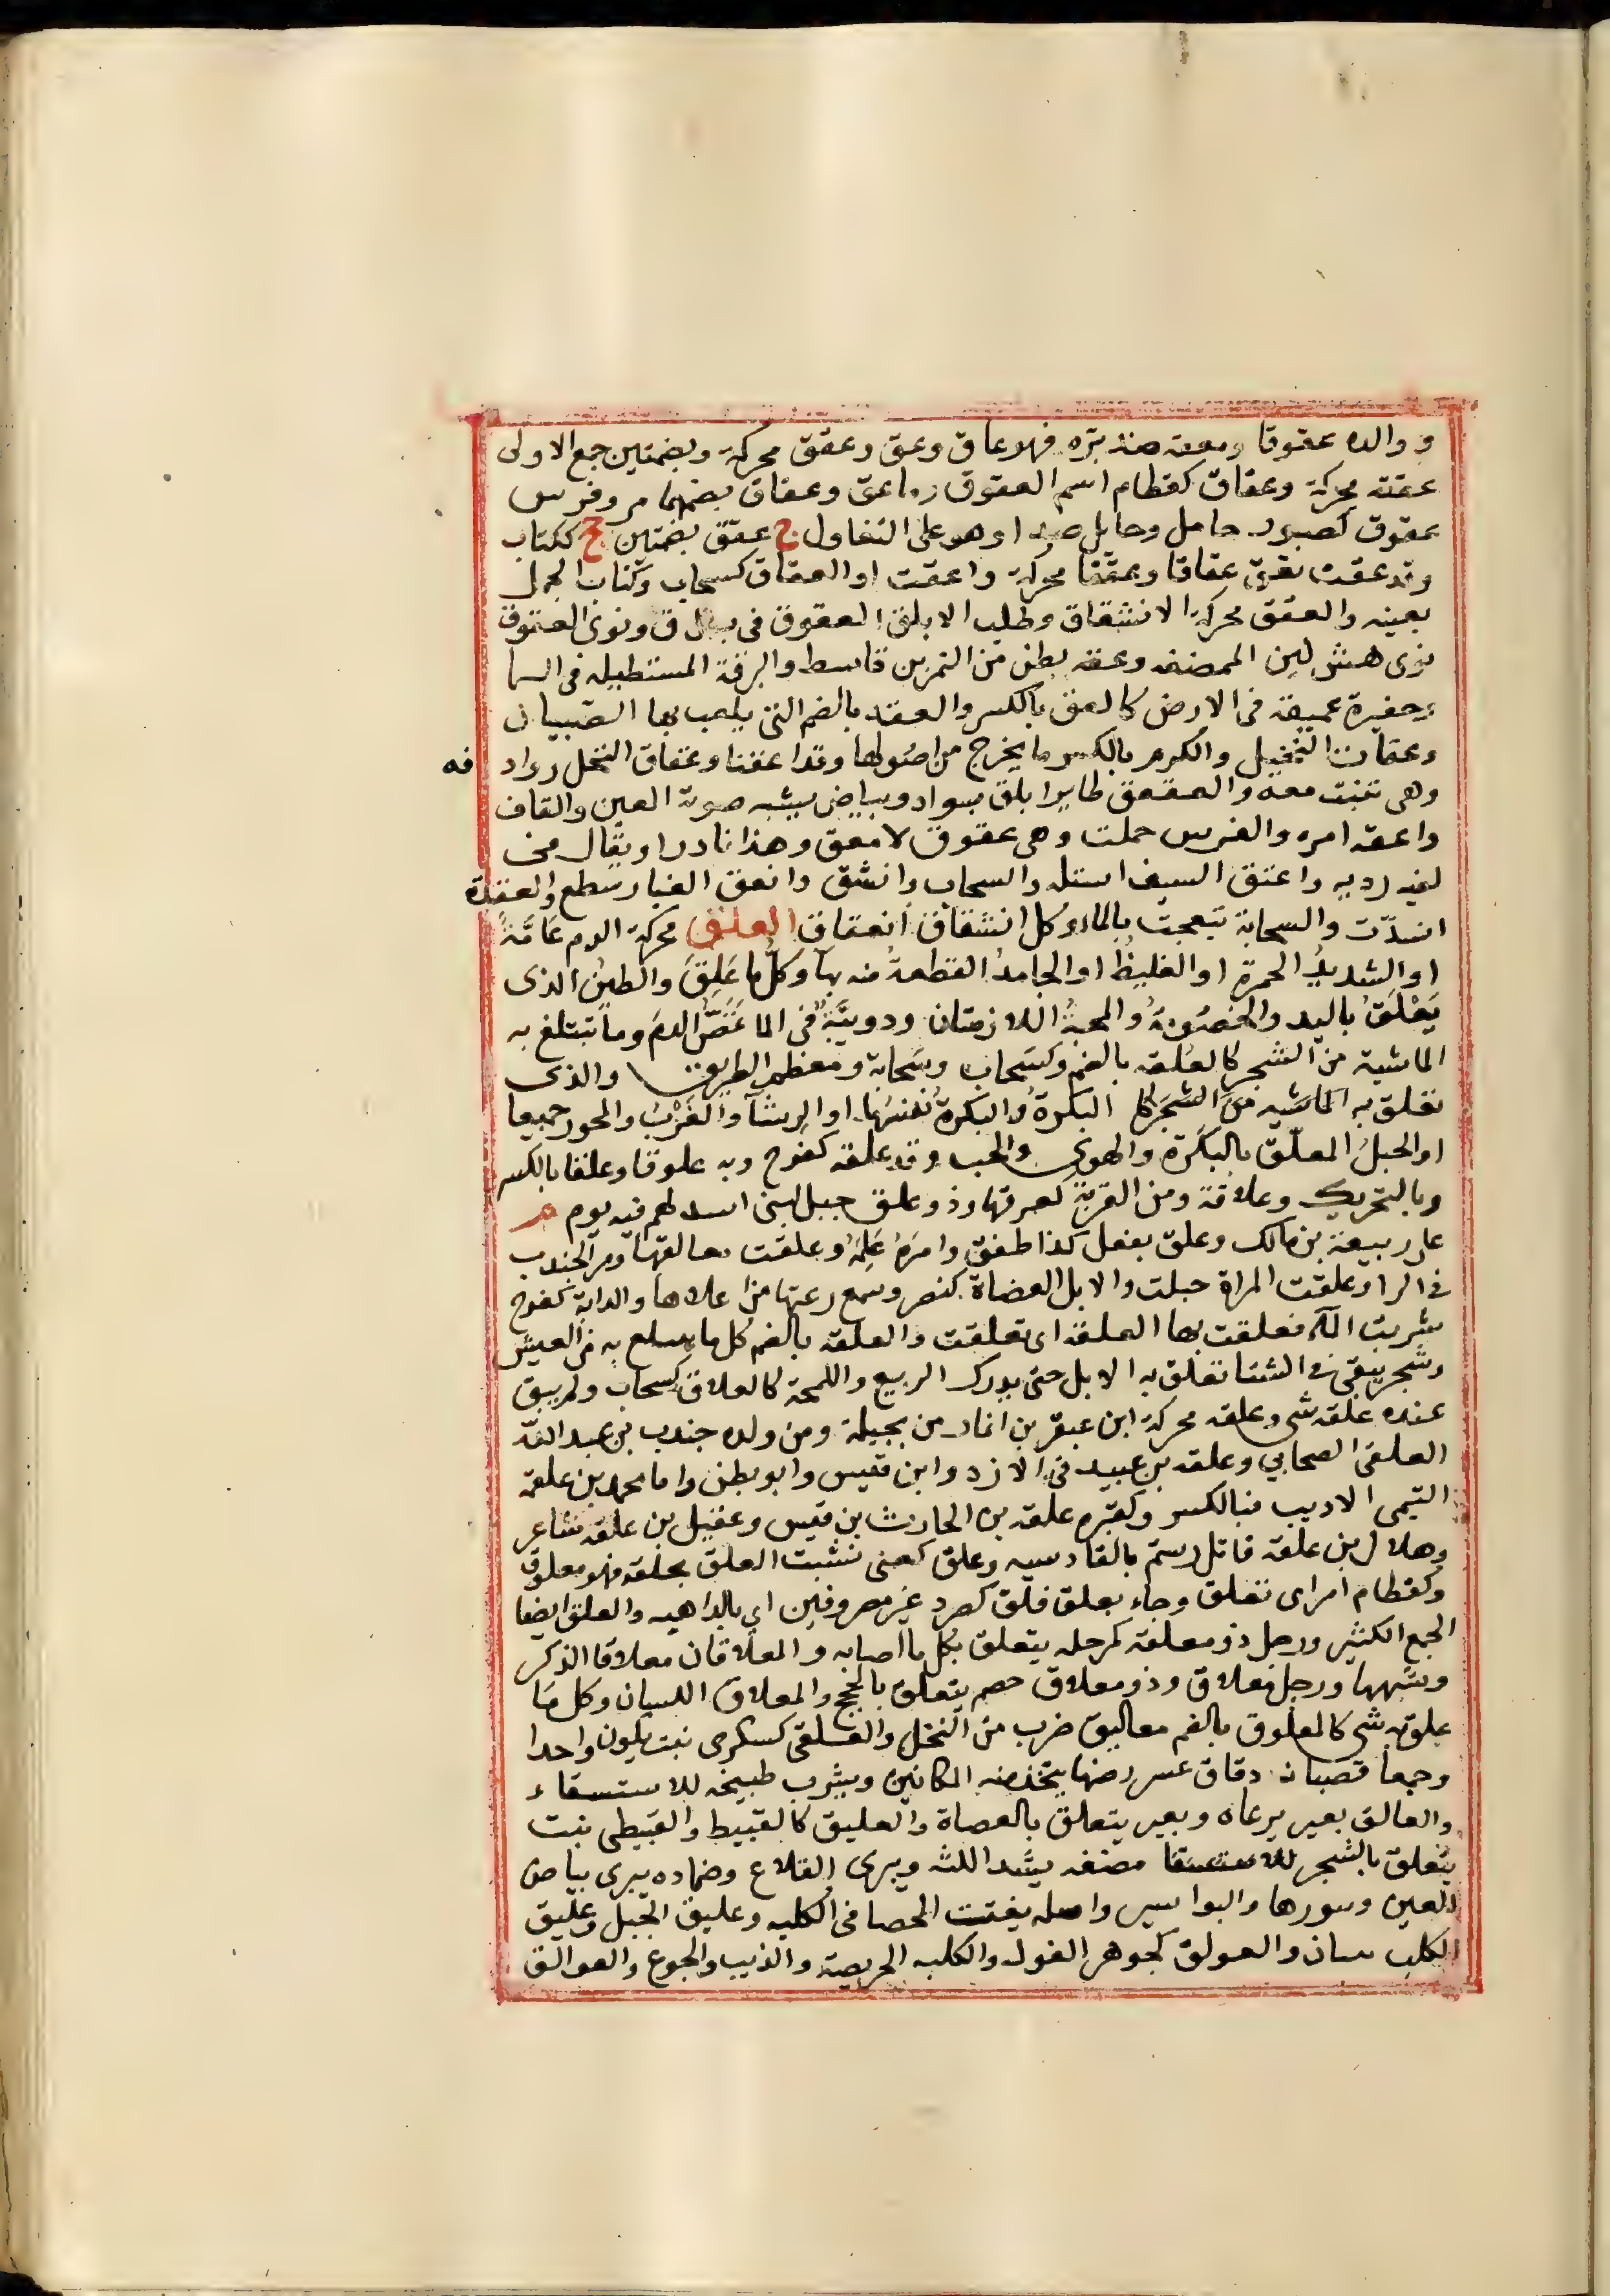 و والده عقوقا ومعقة ضد بره فهو عاق وعق وعقق محركة وبضمتين جمع الاولى
عققة محركة وعقاق كقطام اسم العقوق وماء عق وعقاق بضمهما مر وفرس
عقوق كصبور حامل وحايل ضد او هو على التفاول ج عقق بضمتين جج ككتاب
وقد عقت تعق عقاقا وعققا محركة واعقت او العقاق كسحاب وكتاب الحمل
بعينه والعقق محركة الانشقاق وطلب الابلق العقوق في ب ل ق ونوى العقوق
نوى هش لين الممضغة وعقه بطن من النمر بن قاسط والبرقة المستطيله فى السما
وحفيرة عميقة فى الارض كالعق بالكسر والعقه بالضم التى يلعب بها الصبيان
وعقان النخيل والكروم بالكسر ما يخرج من اصولها وقد اعقتا وعقاق النخل رواد فه
وهى تنبت معه والعقعق طاير ابلق بسواد وبياض يشبه صوته العين والقاف
واعقه امره والفرس حملت وهى عقوق لا معق وهذا نادر او يقال فى
لغيه رديه واعتق السيف استله والسحاب وانشق وانعق الغبار سطع والعقدة
انشدّت والسحابة تبعجت بالماء وكل انشقاق انعقاق العلق محركة الدم عامّةً
او الشديدُ الحمرة او الغليظُ او الجامدُ القطعةُ منه بهآ وكلُّ ما عَلِقَ والطينُ الذى
يَعْلَقُ باليد والخصُومَةُ والمحبةُ اللازمتان ودويبَّةٌ فى الما تمصّ الدمَ وما تتبلغ به
الماشية من الشجر كالعُلقه بالضم وكسَحاب وسَحابة ومُعظمُ الطريق والذى
تعلق به البكرةُ والبكرةُ نفسُها او الرِشآ والغَرْبُ والمحور جميعا
او الحبلُ المعلّق بالبَكَرَة والهوى والحب وقد علقه كفرح وبه علوقا وعلقا بالكسر
وبالتحريك وعلاقة ومن القربة كعرقها وذو علق جبل لبنى اسد لهم فيه يوم م
على ربيعة بن مالك وعلق يفعل كذا طفق وامرَهُ عَلِمَهُ وعلقت معالقها وصر الجندب
فى الرا وعلقت المراة حبلت والابل العضاة كنصر وسمع رعتها من اعلاها والدابة كفرح
شربت المآء فعلقت بها العلقه اى تعلقت والعلقه بالضم كل ما يتبلغ به من العيش
وشجر يبقى فى الشتا تعلق به الابل حتى يدرك الربيع واللمجة كالعلاق كسحاب ولم يبق
عنده علقه شى وعلقه محركة ابن عبقر بن انمار من بجيلة ومن ولده جندب بن عبد الله
العلقى الصحابي وعلقه بن عبيد فى الازد وابن قيس وابو بطن واما محمد بن علقه
التيمى الاديب فبالكسر وكقبره علقه بن الحارث بن قيس وعقيل بن علقه شاعر
وهلال بن علقه قاتل رستم بالقادسيه وعلق كعنى نشبت العلق بحلقه فهو معلوق
وكقطام امر اى تعلق وجاء بعلق فلق كصرد غير مصروفين اى بالداهيه والعلق ايضا
الجمع الكثير ورجل ذو معلقة كمرحله يتعلق بكل ما اصابه والمعلاقان معلاقا الذكر
وشبهها ورجل معلاق وذو معلاق خصم يتعلق بالحجج والمعلاق اللسان وكل مَا
علق به شى كالمعلوق بالضم معاليق ضرب من النخل والعلقى كسكرى نبت يكون واحدا
وجمعا قضبانه دقاق عسر رضها يتخذ منه المكانس ويشرب طبيخه للاستسقاء
والعالق بعير يرعاه وبعير يتعلق بالعضاة والعليق كالقبيط والقبيطى نبت
يتعلق بالشجر مضغه يشد اللثه ويبرى القلاع وضماده يبرى بياض
العين ونتورها والبواسير واصله يفتت الحصا فى الكليه وعليق الجبل وعليق
الكلب نبتان والعولق كجوهر الغول والكلبه الحريصة والذيب والجوع والعوالق